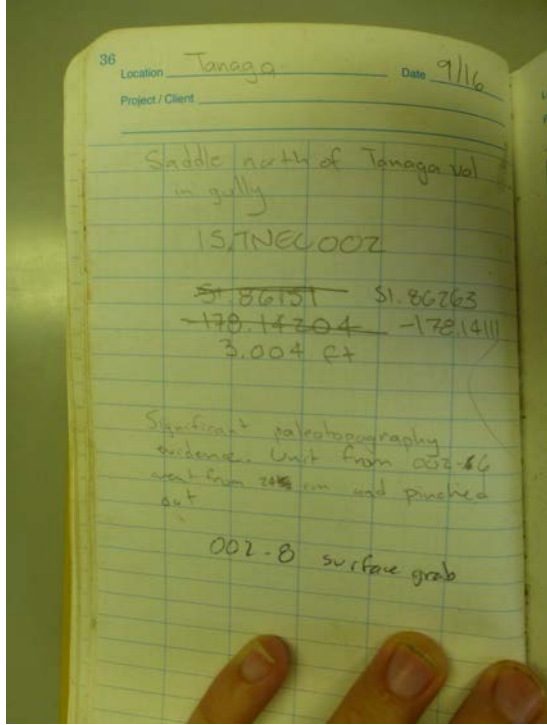 36
Location Tanaga Date 9/16
Project / Client
Saddle north of Tanaga vol
in gully
15TNEL002
51.86151 51.86263
-178.14204 -178.14111
3.004 ft
Significant paleotopography
evidence. Unit from 002-6
went from cm and pinched
out
002-8 surface grab